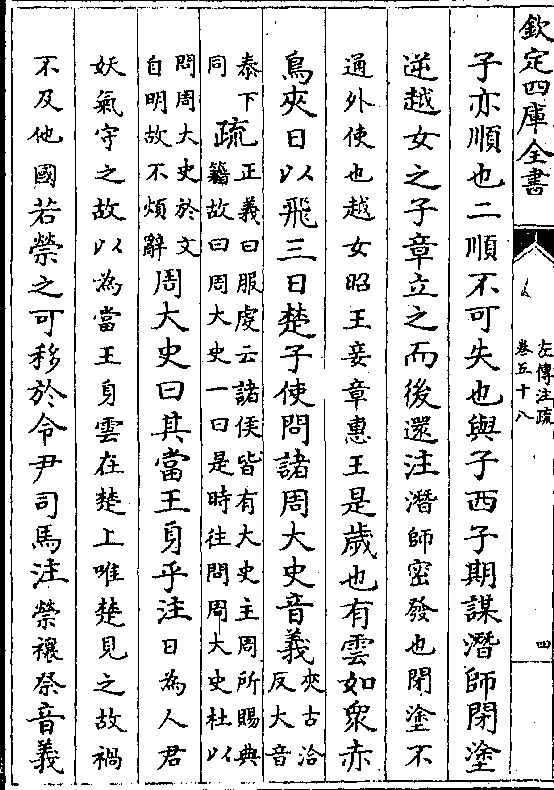 欽定四庫全書
左傳注疏
卷五十八
四
子亦順也二順不可失也與子西子期謀潛師閉塗
逆越女之子章立之而後還注潛師密發也閉塗不
通外使也越女昭王妾章惠王是歲也有雲如衆赤
鳥夾日以飛三日楚子使問諸周大史音義夾古洽
反大音
泰下
同
疏正義曰服虔云諸侯皆有大史主周所賜典
籍故曰周大史一曰是時往問周大史杜以
問周大史於文
自明故不煩辭
周大史曰其當王身乎注日為人君
妖氣守之故以為當王身雲在楚上唯楚見之故禍
不及他國若禜之可移於令尹司馬注禜禳祭音義